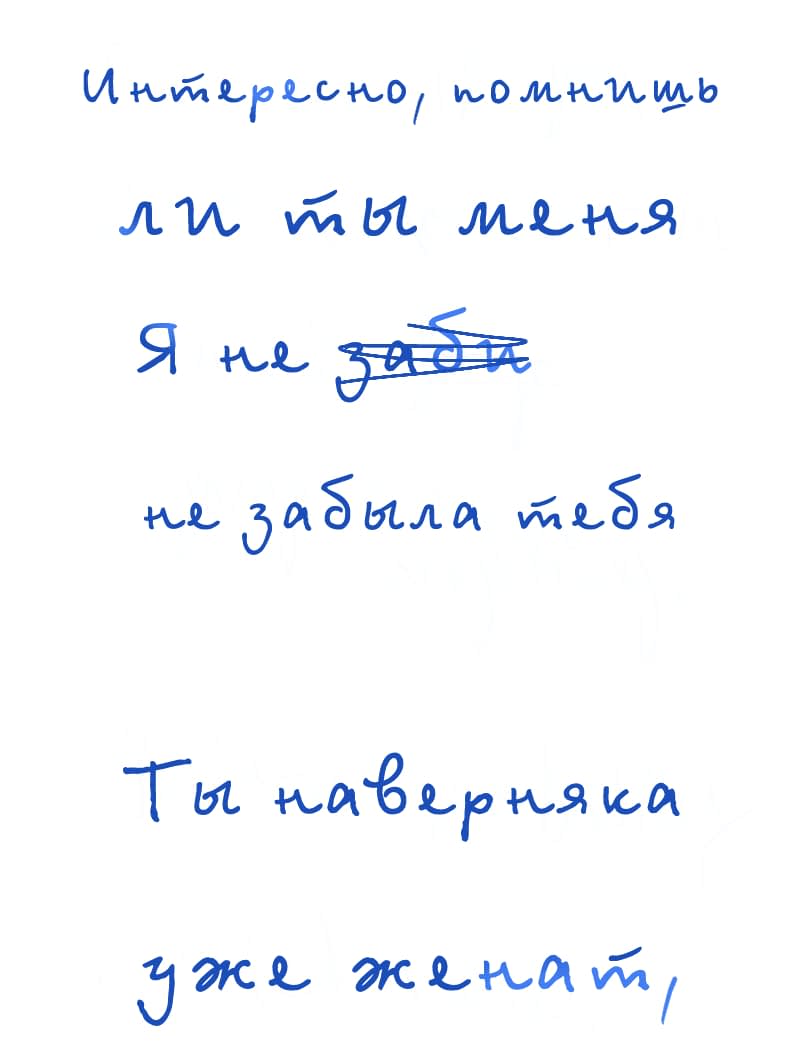 Интересно, помнишь
ли ты меня
Я не заби
не забыла тебя
Ты наверняка
уже женат,